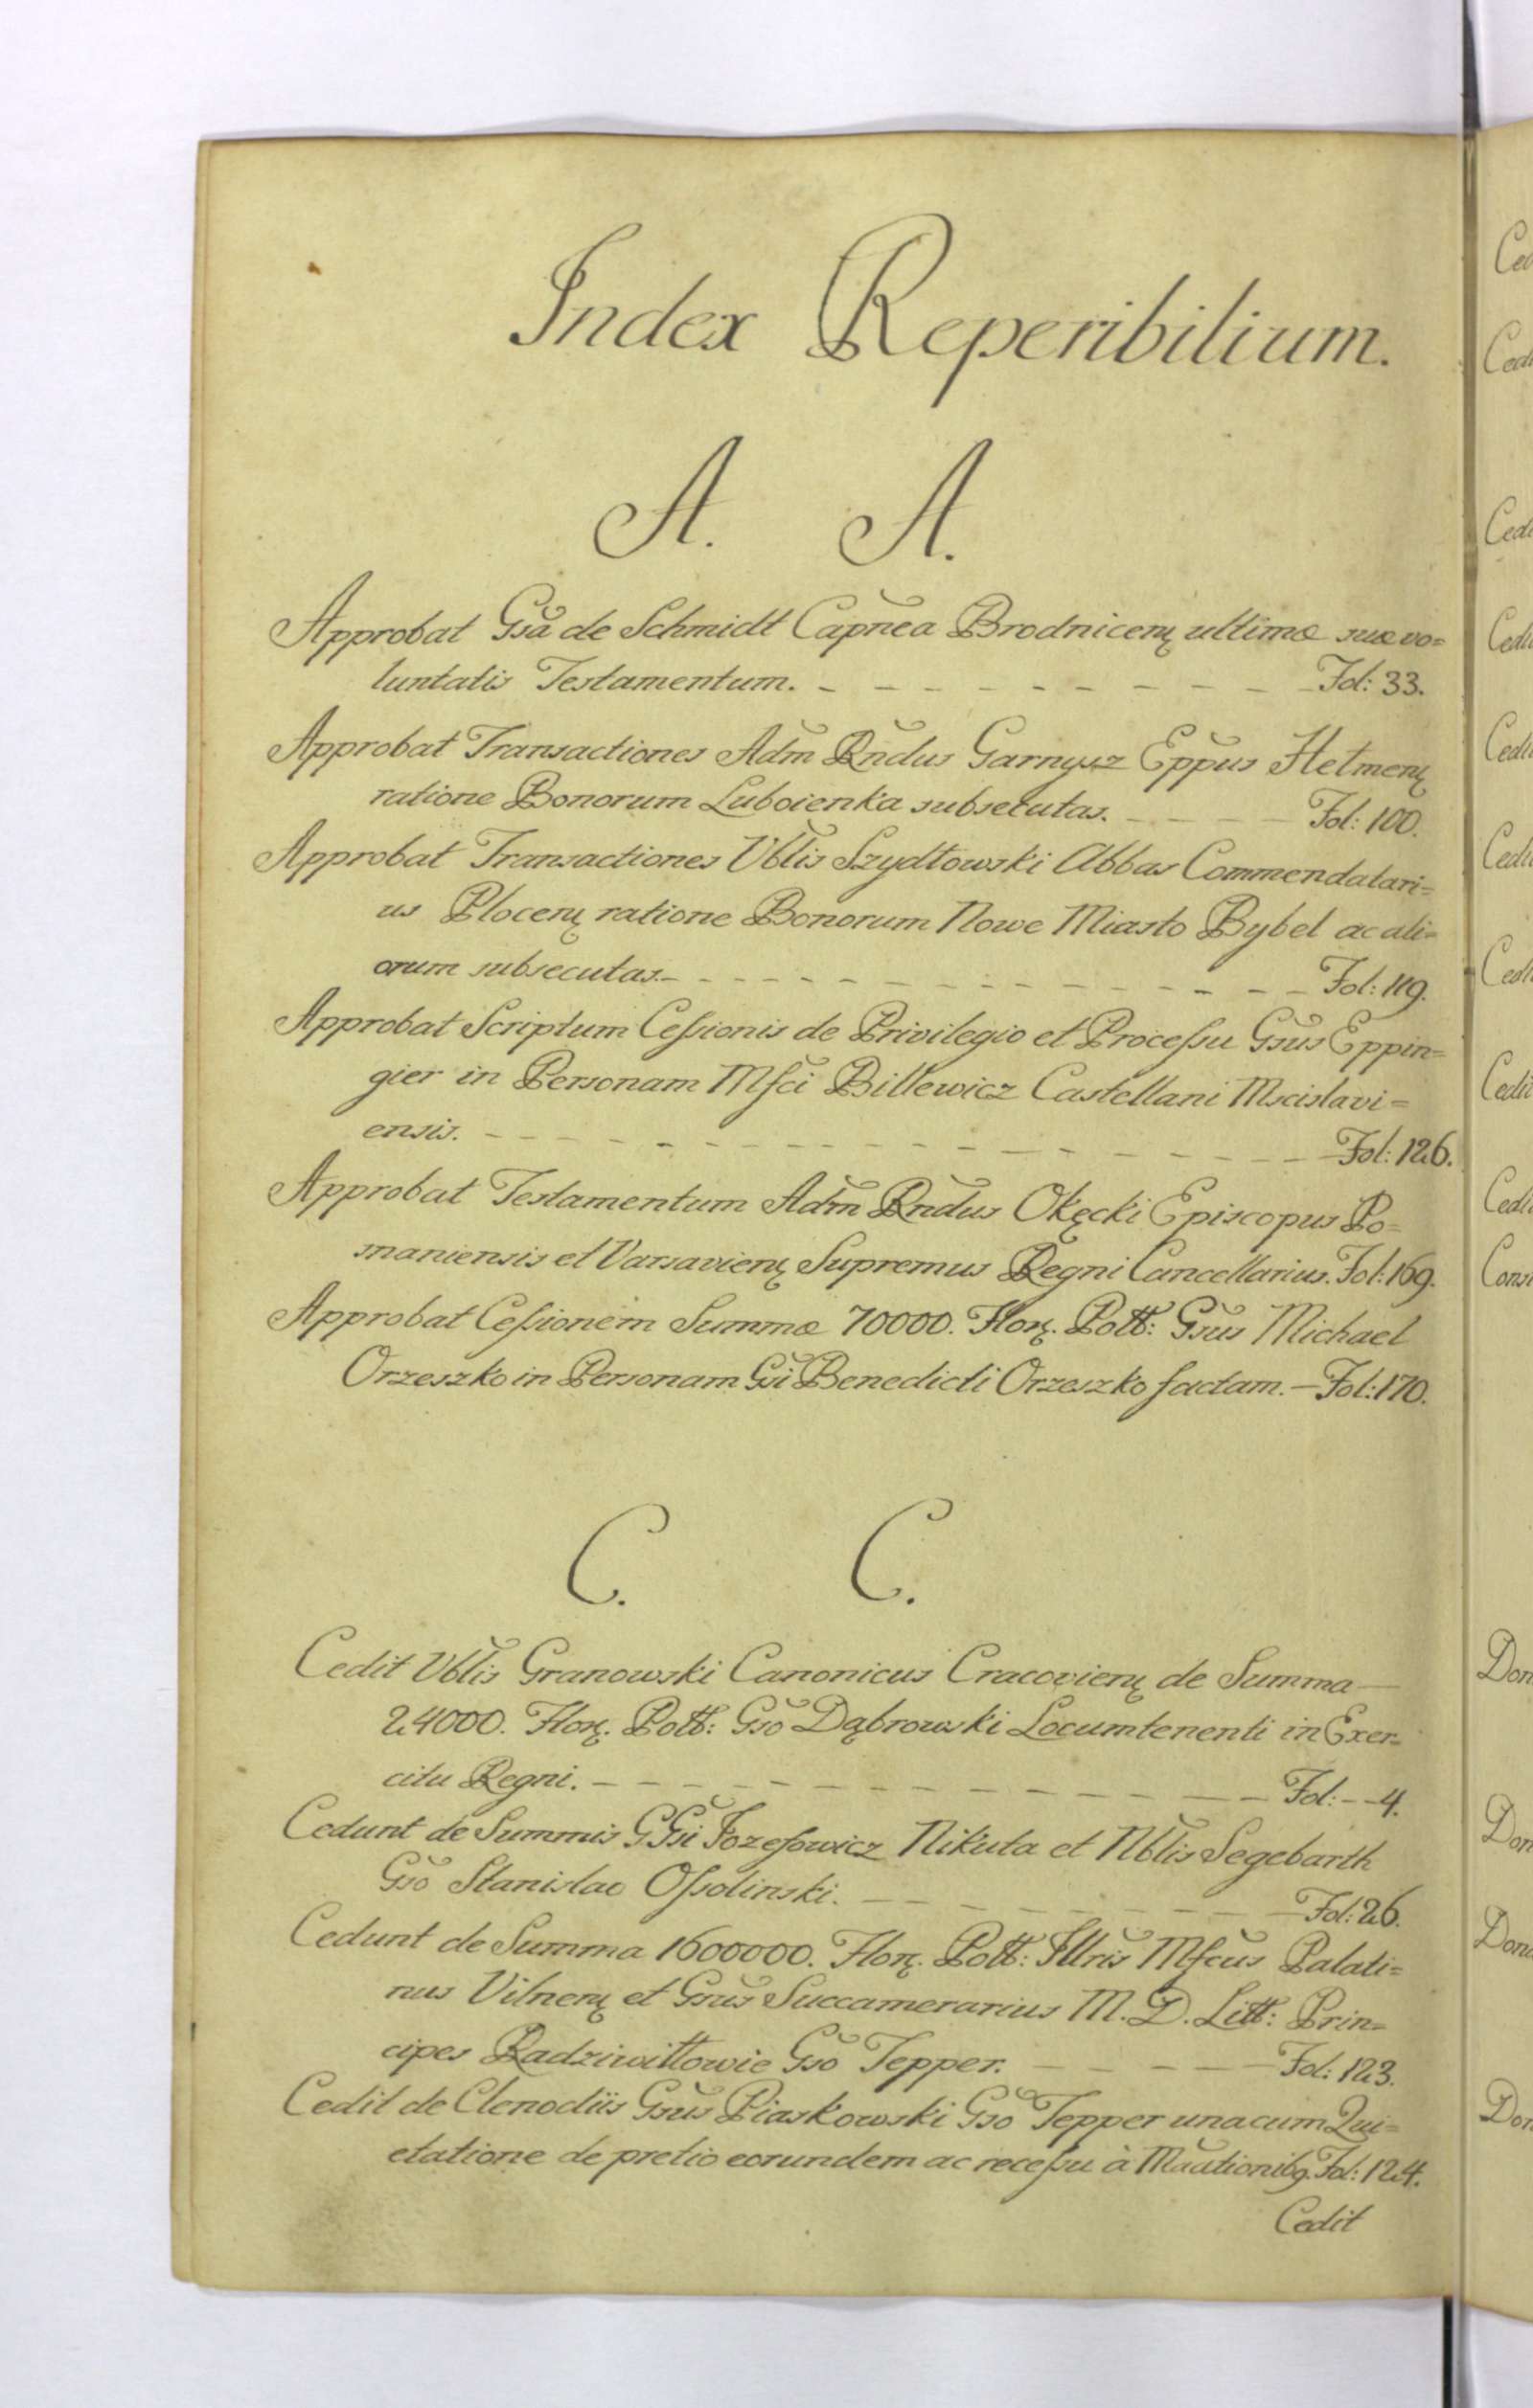 Index Reperibilium.
A. A.
Approbat Gsa de Schmidt Capnea Brodnicen ultimæ suæ vo=
luntatis Testamentum. - - - - - - - - - - Fol: 33.
Approbat Transactiones Adm Rndus Garnysz Eppus Hetmen
ratione Bonorum Luboienka subsecutas. - - - - Fol: 100.
Approbat Transactiones Vblis Szydłowski Abbas Commendatari=
us Plocen ratione Bonorum Nowe Miasto Bybel ac ali=
orum subsecutas. - - - - - - - - - - - - Fol: 119.
Approbat Scriptum Cessionis de Privilegio et Processu Gsus Eppin=
gier in Personam Mfci Billewicz Castellani Mscislavi=
ensis. - - - - - - - - - - - - - - - Fol: 126.
Approbat Testamentum Adm Rndus Okęcki Episcopus Po=
snaniensis et Varsavien Supremus Regni Cancellarius. Fol: 169.
Approbat Cessionem Summæ 70000. Flor. Poll: Gsus Michael
Orzeszko in Personam Gsi Benedicti Orzeszko factam. - Fol: 170.
C. C.
Cedit Vblis Granowski Canonicus Cracovien de Summa
24000. Flor. Poll: Gso Dąbrowski Locumtenenti in Exer=
citu Regni. - - - - - - - - - - - - - Fol: - - 4.
Cedunt de Summis GGsi Jozefowicz Nikuta et Nblis Segebarth
Gso Stanislao Ossolinski. - - - - - - - Fol: 26.
Cedunt de Summa 1600000. Flor. Poll: Illris Mfcus Palati=
nus Vilnen et Gsus Succamerarius M. D. Litt: Prin=
cipes Radziwiłłowie Gso Tepper. - - - - - Fol: 123.
Cedit de Clenodiis Gsus Piaskowski Gso Tepper unacum Qui=
etatione de pretio eorundem ac recessu à Fol: 124.
Cedit